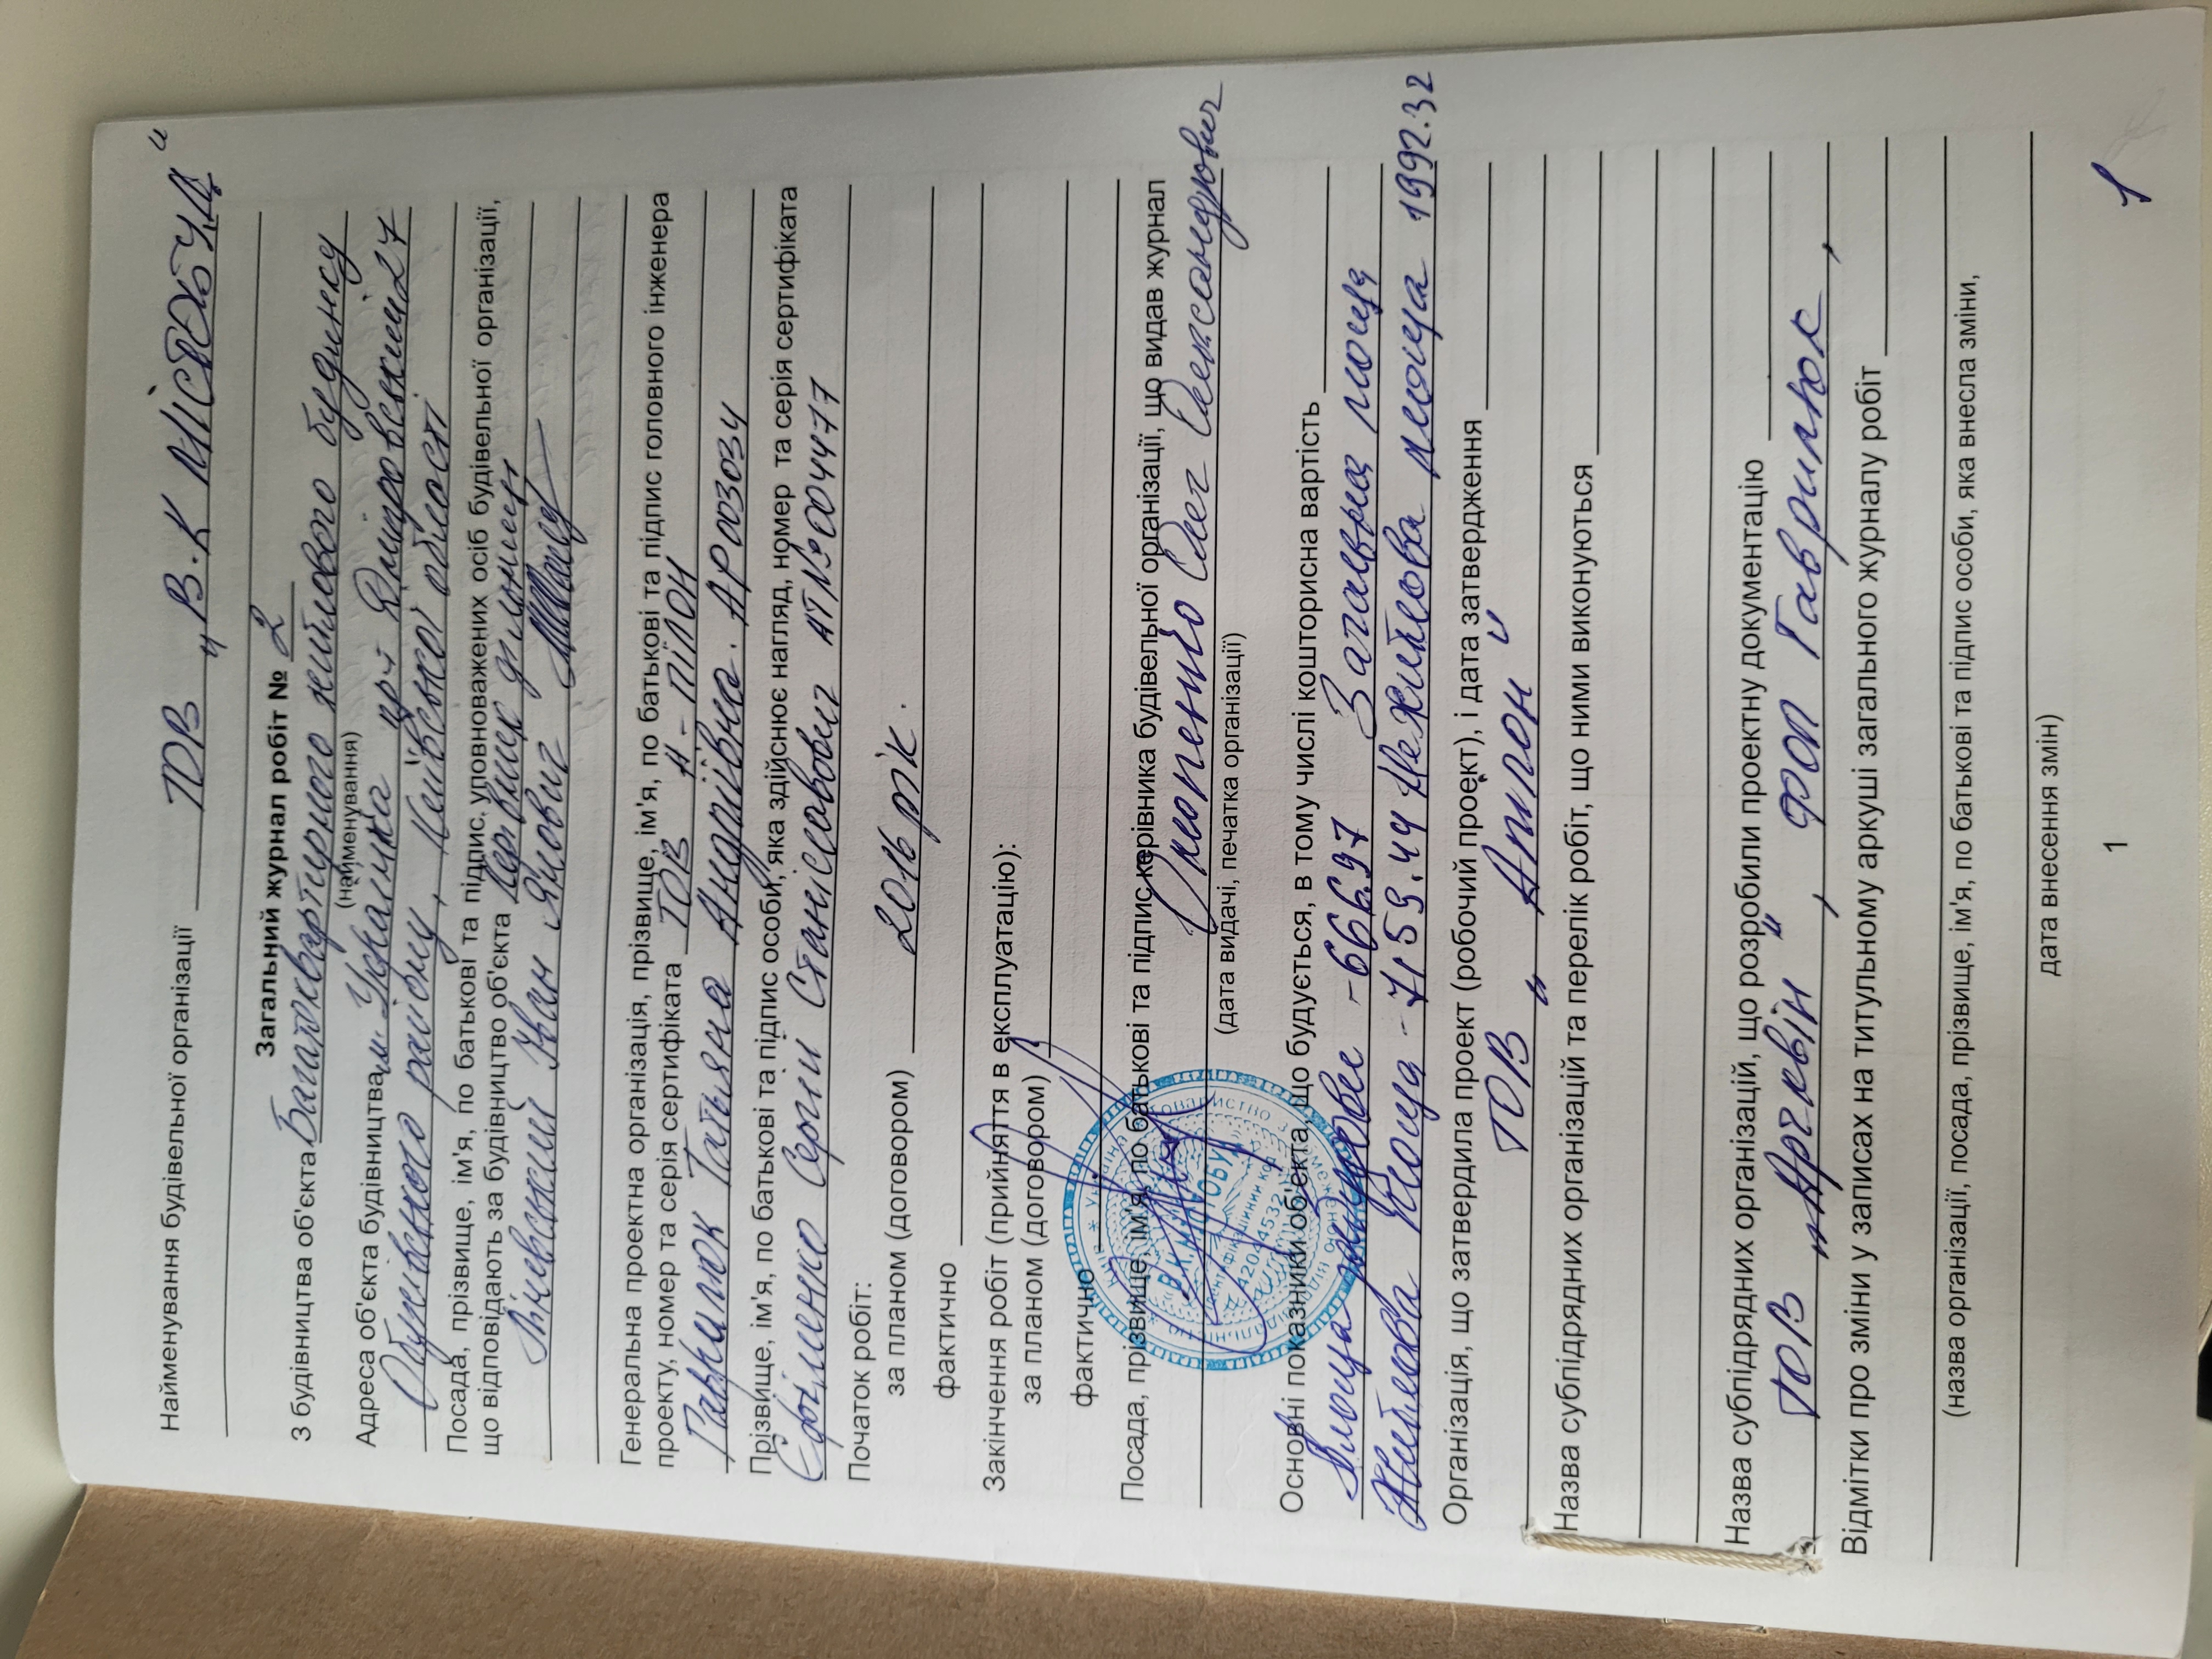 Найменування будівельної організації ТОВ "В.К МІСТОБУД"
Загальний журнал робіт № 2
З будівництва об'єкта Багатоквартирного житлового будинку
(найменування)
Адреса об'єкта будівництва м Українка прт Дніпровський 27
Обухівського району, Київської області
Посада, прізвище, ім'я, по батькові та підпис, уповноважених осіб будівельної організації,
що відповідають за будівництво об'єкта керівник дільниці
Іван Янович
Генеральна проектна організація, прізвище, ім'я, по батькові та підпис головного інженера
проекту, номер та серія сертифіката ТОВ А-ПІЛОН
Гаврилюк Татьяна Андріївна. АР003034
Прізвище, ім'я, по батькові та підпис особи, яка здійснює нагляд, номер та серія сертифіката
Єфіменко Сергій Станіславович АТ№004477
Початок робіт:
за планом (договором) 2016 рік.
фактично
Закінчення робіт (прийняття в експлуатацію):
за планом (договором)
фактично
Посада, прізвище, ім'я, по батькові та підпис керівника будівельної організації, що видав журнал
Олег Олександрович
(дата видачі, печатка організації)
Основні показники об'єкта, що будується, в тому числі кошторисна вартість
Площа забудови - 666.97 Загальна площа
Житлова площа - 7159.44 Нежитлова площа 1992.32
Організація, що затвердила проект (робочий проект), і дата затвердження
ТОВ "Апілон"
Назва субпідрядних організацій та перелік робіт, що ними виконуються
Назва субпідрядних організацій, що розробили проектну документацію
ТОВ "Артквін", ФОП Гаврилюк,
Відмітки про зміни у записах на титульному аркуші загального журналу робіт
(назва організації, посада, прізвище, ім'я, по батькові та підпис особи, яка внесла зміни,
дата внесення змін)
1
1